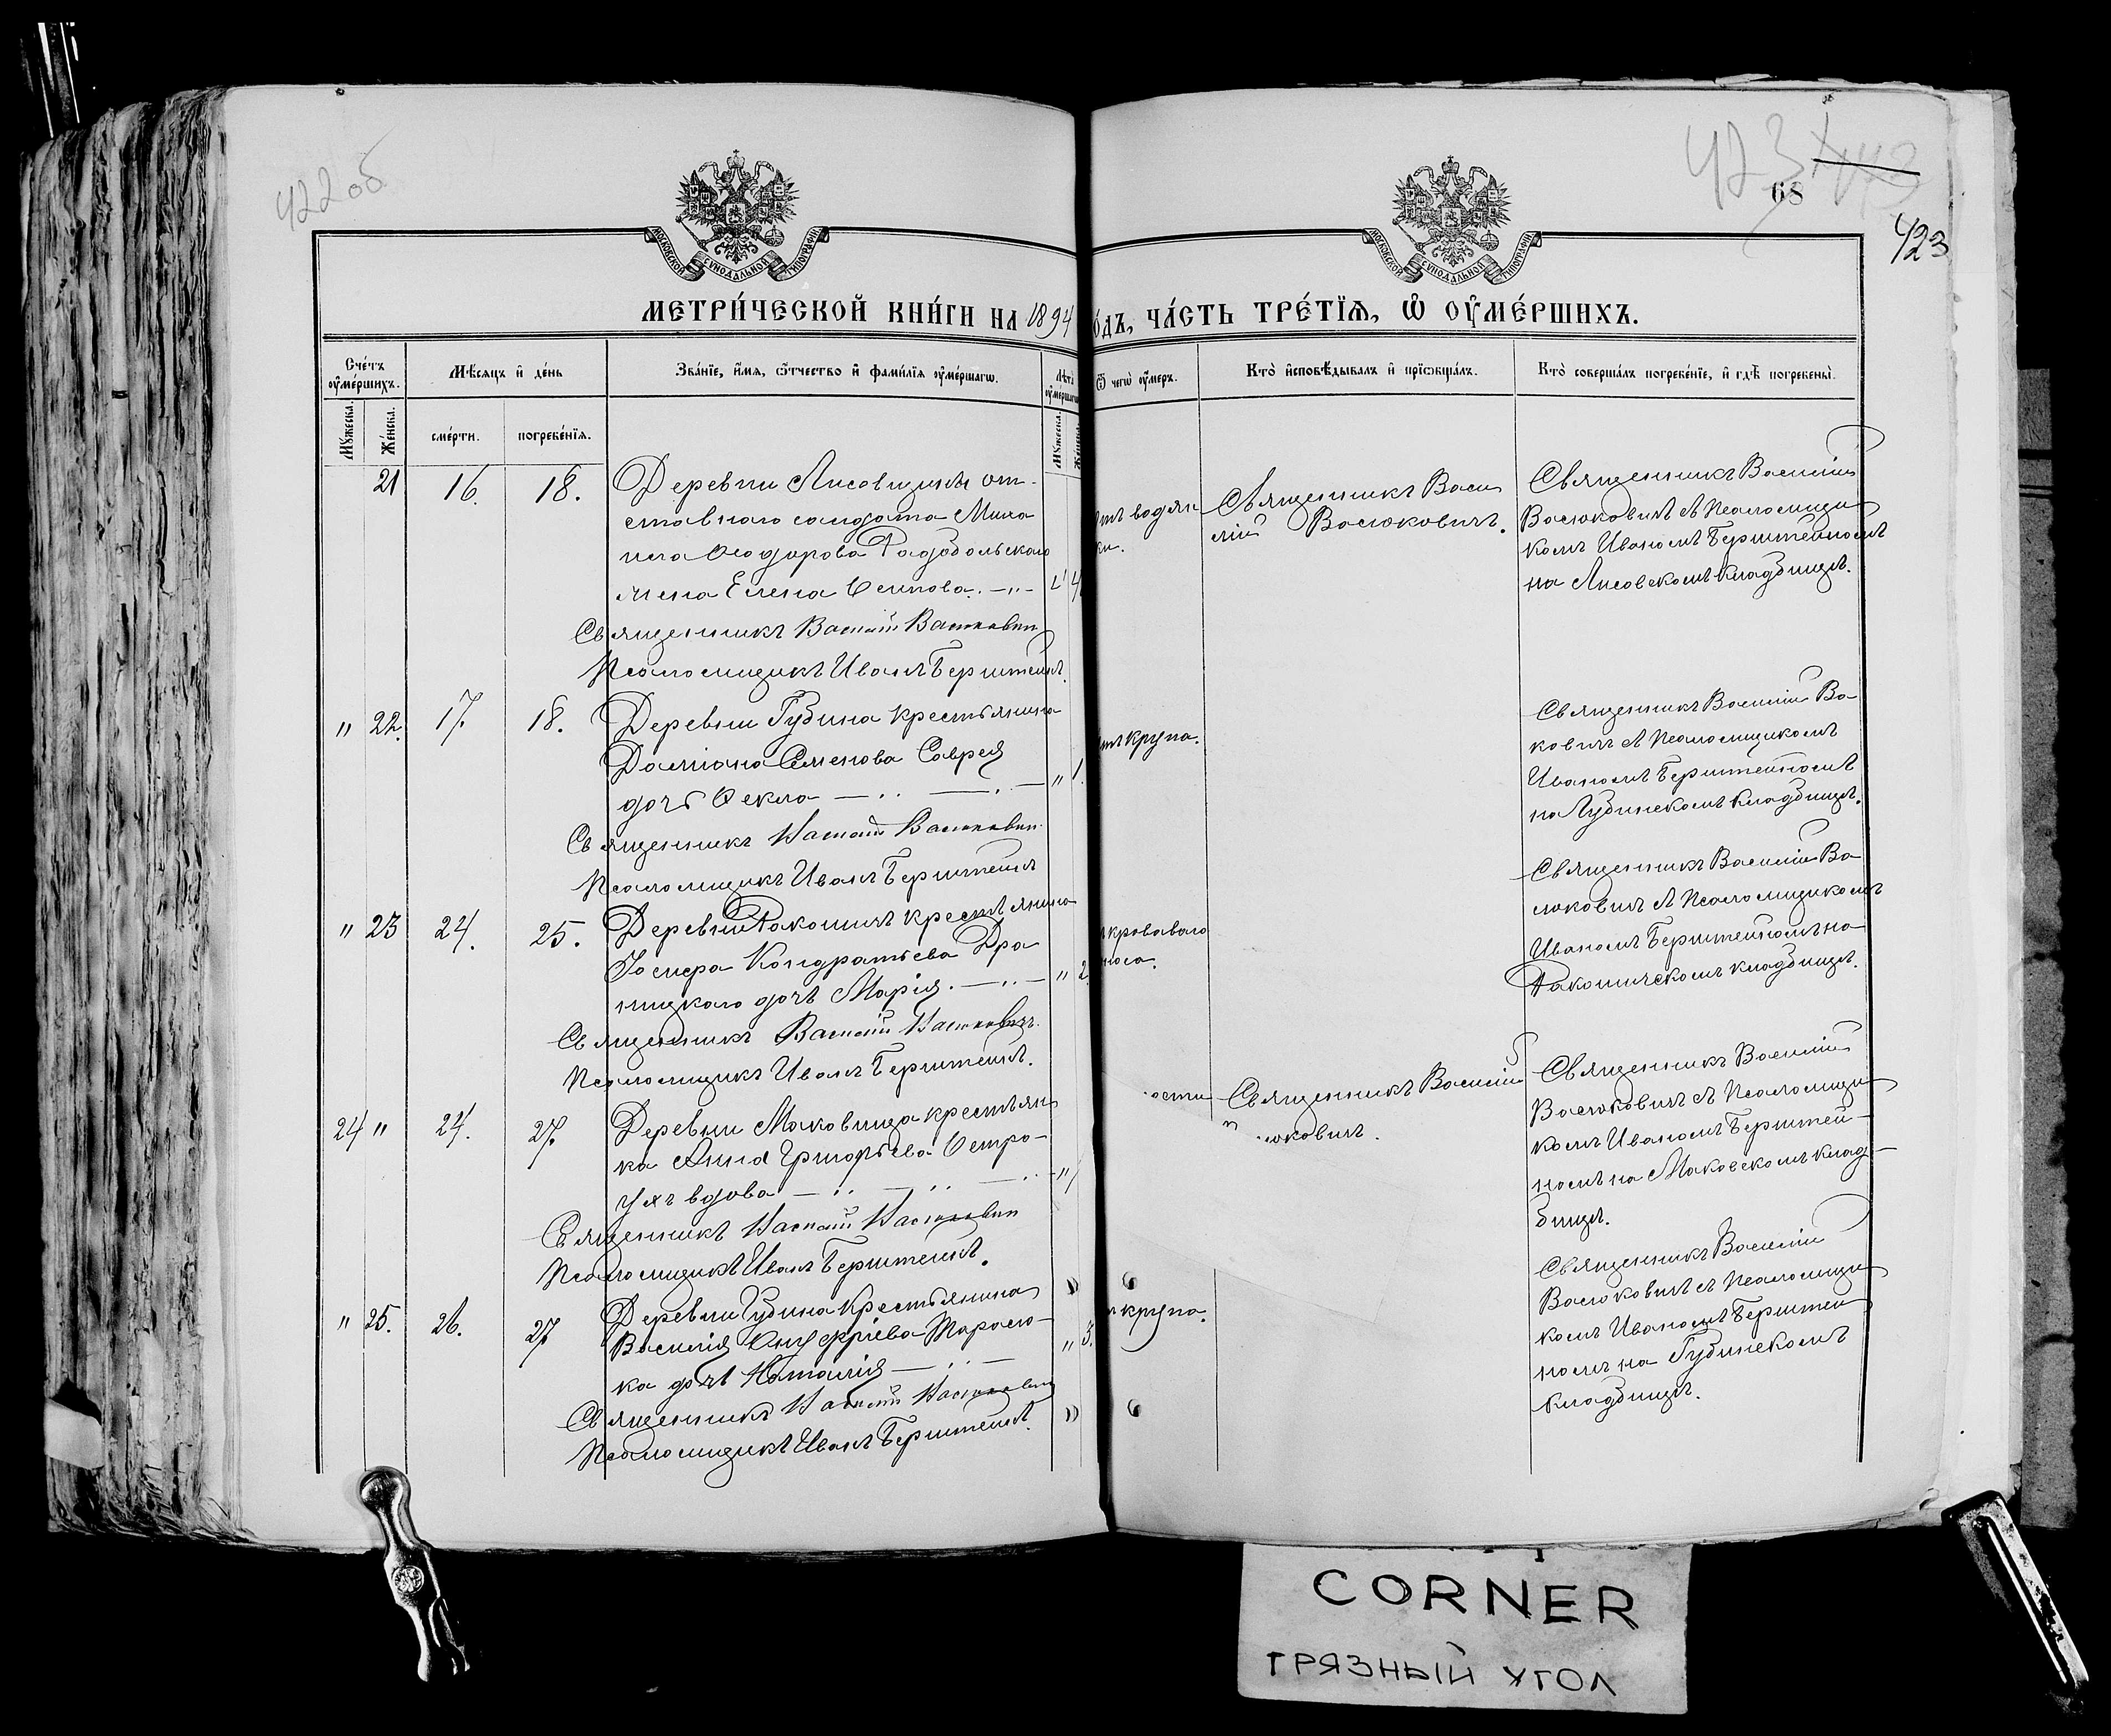 422об
423
68
423
МОСКОВСКОЙ СѴНОДАЛЬНОЙ ТИПОГРАФІИ
МОСКОВСКОЙ СѴНОДАЛЬНОЙ ТИПОГРАФІИ
МЕТРИ́ЧЕСКОЙ КНИ́ГИ НА 1894
О́ДЪ, ЧА́СТЬ ТРЕ́ТІѦ, Ѡ҆ ОУ҆МЕ́РШИХЪ.
Сче́тъ оу҆ме́ршихъ.
Мѣ́сяцъ и҆ де́нь
Зва́нїе, и҆́мя, ѻ҆́тчество и҆ фами́лїя оу҆ме́ршагѡ.
Лѣ́та оу҆ме́ршагѡ
Ѿ чегѡ̀ оу҆́меръ.
Кто̀ и҆сповѣ́дывалъ и҆ прїѡбща́лъ.
Кто̀ соверша́лъ погребе́нїе, и҆ гдѣ̀ погребены̀.
Мꙋ́жеска.
Же́нска.
сме́рти.
погребе́нїя.
Мꙋ́жеска.
21 16. 18.
Деревни Лисовщины от-
ставного солдата Миха
ила Ѳеодорова Радобольского
жена Елена Осипова.
Священникъ Василій Васюковичъ
Псаломщикъ Иванъ Берштейнъ.
водян
ки.
Священникъ Васи
лій Васюковичъ.
Священникъ Василій
Васюковичъ съ Псаломщи
комъ Иваномъ Берштейномъ
на Лисовскомъ кладбищѣ.
" 22. 17. 18.
Деревни Губина крестьянина
Даміана Семенова Саврея
дочь Ѳекла " 1.
Священникъ Василій Васюковичъ
Псаломщикъ Иванъ Берштейнъ
крупа.
Священникъ Василій Ва
ковичъ съ Псаломщикомъ
Иваномъ Берштейномъ
на Губинскомъ кладбищѣ.
" 23 24. 25.
Деревни Ракошичъ крестьянина
Іосифа Кондратьева Дра
ницкого дочь Марія. " 2.
Священникъ Василій Васюковичъ.
Псаломщикъ Иванъ Берштейнъ.
кроваваго
носа.
Священникъ Василій Ва
сюковичъ съ Псаломщикомъ
Иваномъ Берштейномъ на
Ракошичскомъ кладбищѣ.
24 " 24. 27.
Деревни Маковища крестьян
ка Анна Григорьева Остро-
ухъ вдова
Священникъ Василій Васюковичъ
Псаломщикъ Иванъ Берштейнъ.
ости
Священникъ Василій
юковичъ.
Священникъ Василій
Васюковичъ съ Псаломщи
комъ Иваномъ Берштей-
номъ на Маковскомъ клад-
бищѣ.
" 25. 26. 27
Деревни Губина крестьянина
Василія Онуфріева Тарасю-
ка дочь Наталія " 3.
Священникъ Василій Васюковичъ
Псаломщикъ Иванъ Берштейнъ.
крупа.
Священникъ Василій
Васюковичъ съ Псаломщи
комъ Иваномъ Берштей
номъ на Губинскомъ
кладбищѣ.
CORNER
ГРЯЗНЫЙ УГОЛ